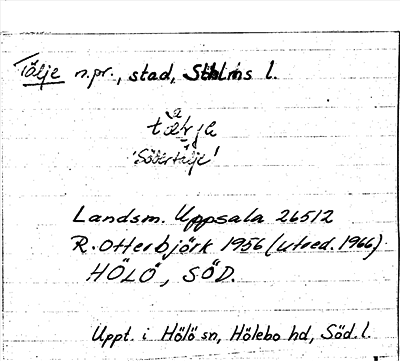 Tälje n.pr., stad, Sthlms l.
'Södertälje'
Landsm. Uppsala 26512
R. Otterbjörk 1956 (utred. 1966)
HÖLÖ, SÖD.
Uppt. i Hölö sn, Hölebo hd, Söd. l.